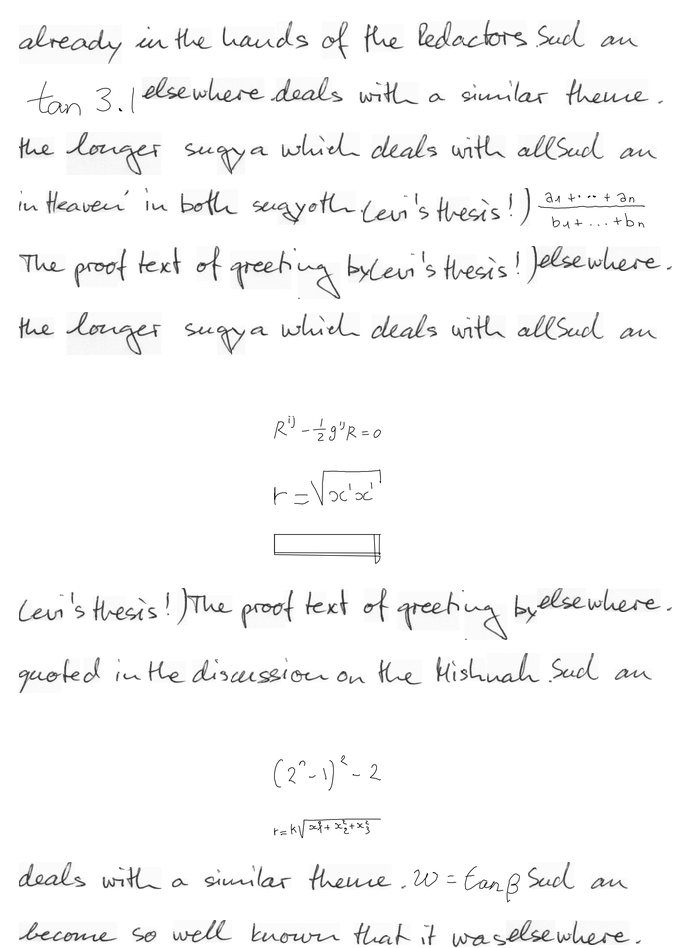 already in the hands of the Redactors. Sud an
tan 3.1 elsewhere. deals with a similar theme.
the longer sugya which deals with all Sud an
in Heaven' in both sugyoth. Levi's thesis!) \frac{a_1+\cdots+a_n}{b_1+\ldots+b_n}
The proof text of greeting by Levi's thesis!) elsewhere.
the longer sugya which deals with all Sud an
R^{ij} - \frac{1}{2} g^{ij} R = 0
r = \sqrt{x^i x^i}
Levi's thesis!) The proof text of greeting by elsewhere.
quoted in the discussion on the Mishnah. Sud an
(2^n - 1)^2 - 2
r = k\sqrt{x_1^2 + x_2^2 + x_3^2}
deals with a similar theme. w = tan β Sud an
become so well known that it was elsewhere.